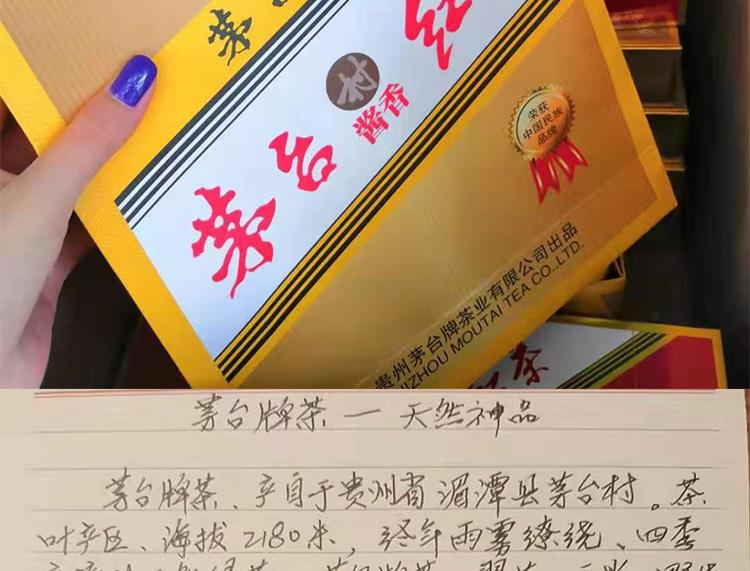 茅台
茅台
村
酱香
红
荣获
中国民族
品牌
贵州茅台牌茶业有限公司出品
GUIZHOU MOUTAI TEA CO.,LTD.
红茶
茅台牌茶一天然神品
茅台牌茶、产自于贵州省湄潭县茅台村。茶
叶产区、海拔2180米，终年雨雾缭绕、四季